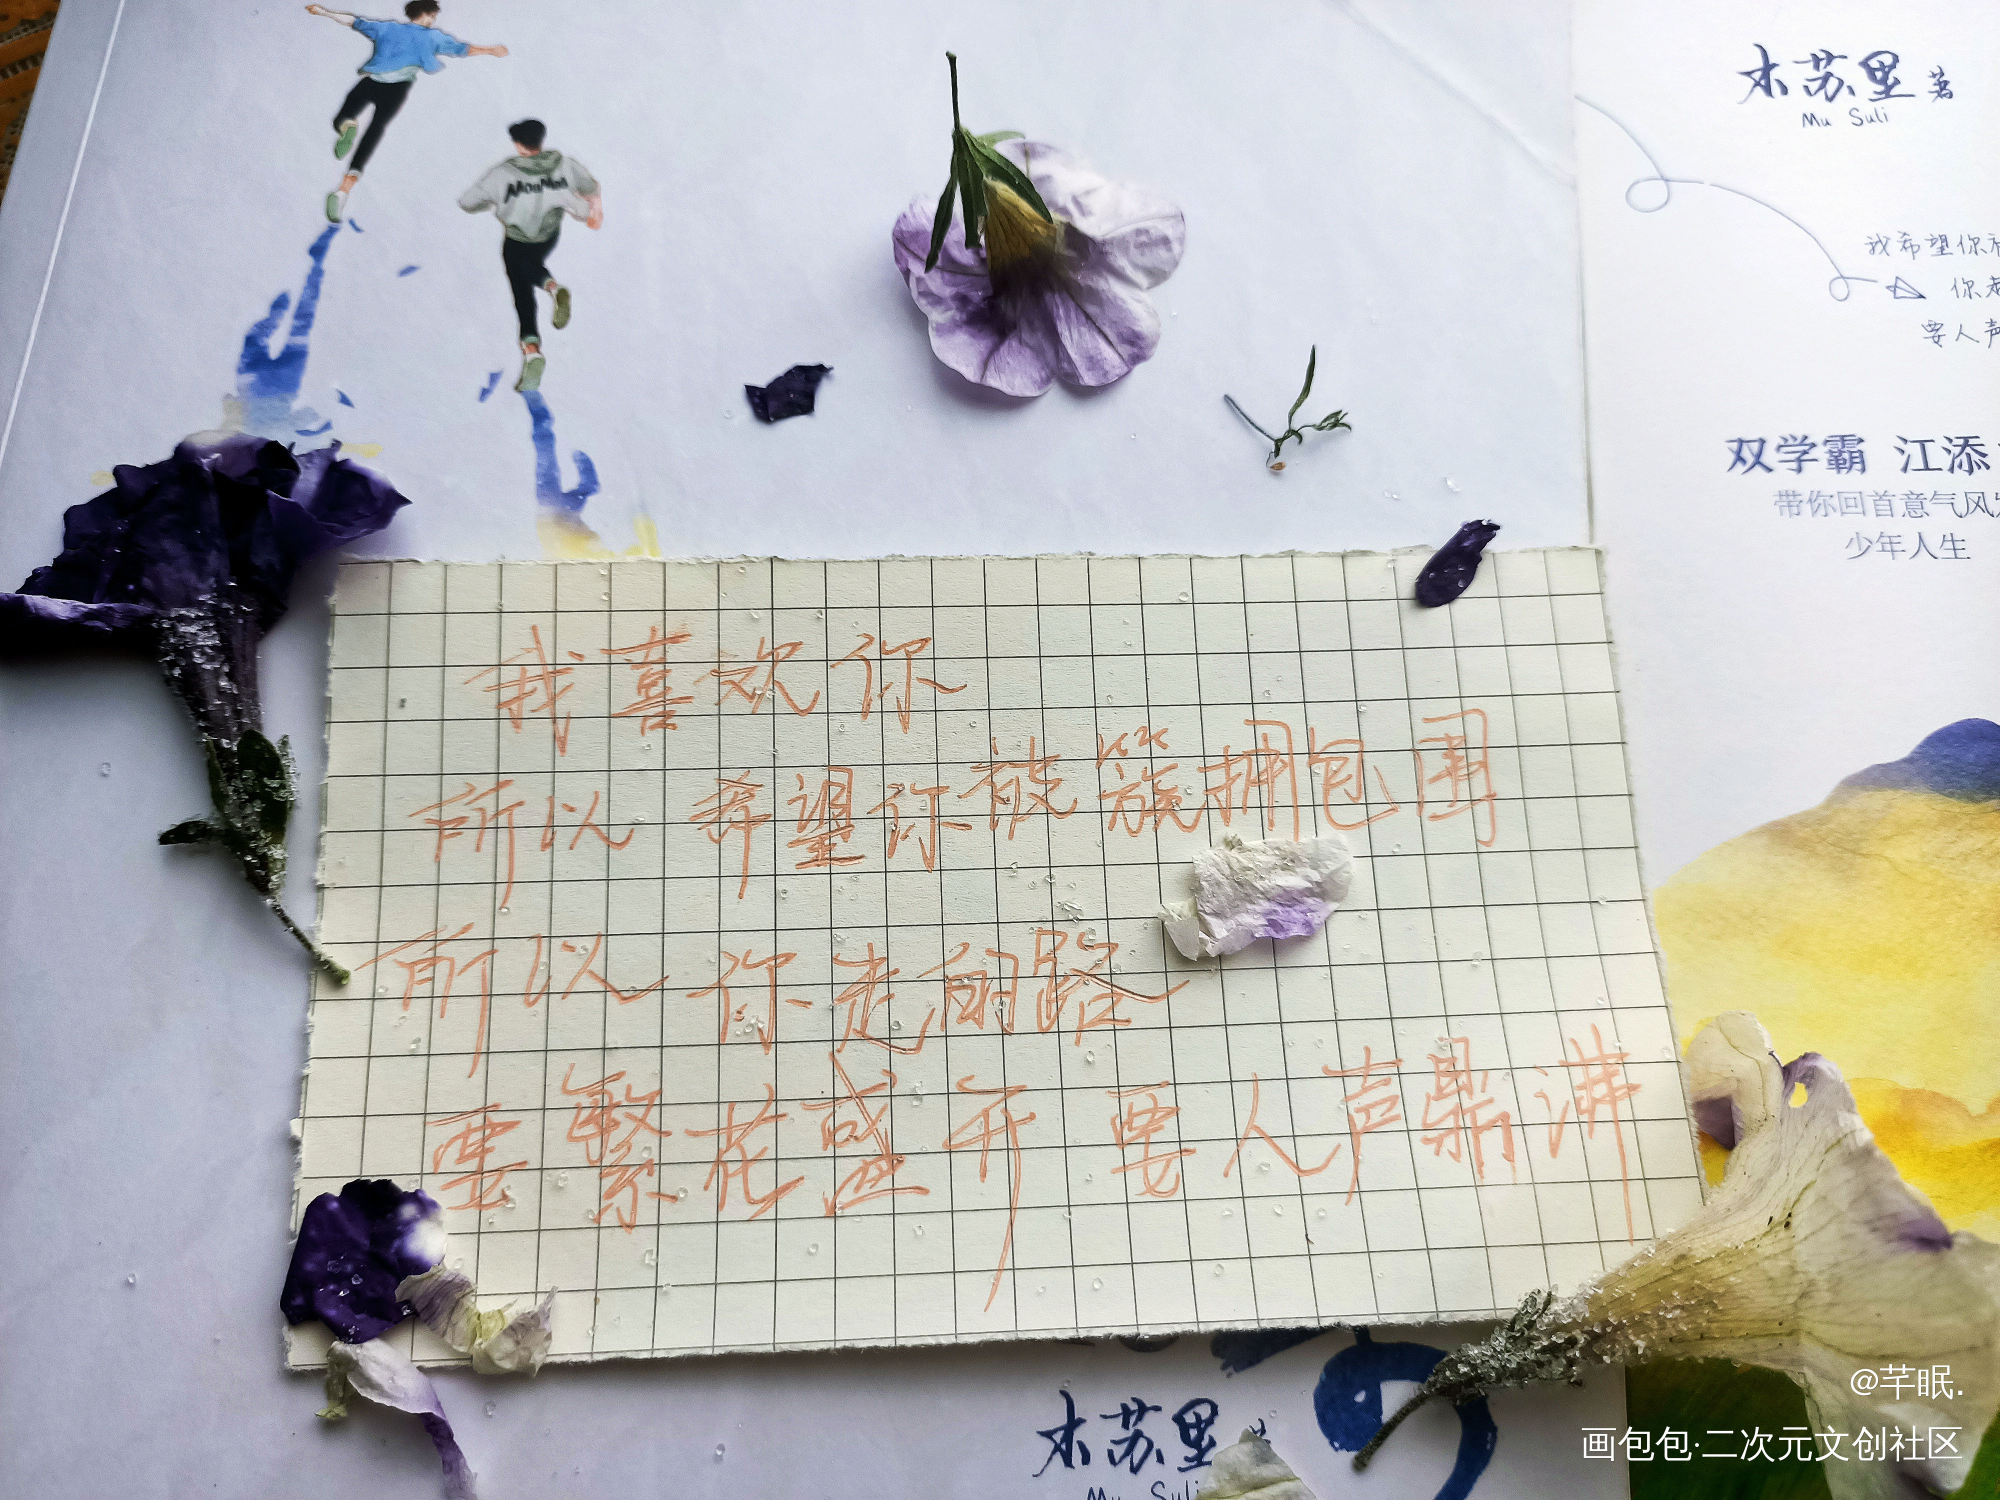 木苏里 著
Mu Suli
我希望你被
你走
要人声
双学霸 江添
带你回首意气风发
少年人生
我喜欢你
所以 希望你被簇拥包围
所以 你走的路
要繁花盛开 要人声鼎沸
木苏里 著
Mu Suli
@芊眠.
画包包·二次元文创社区